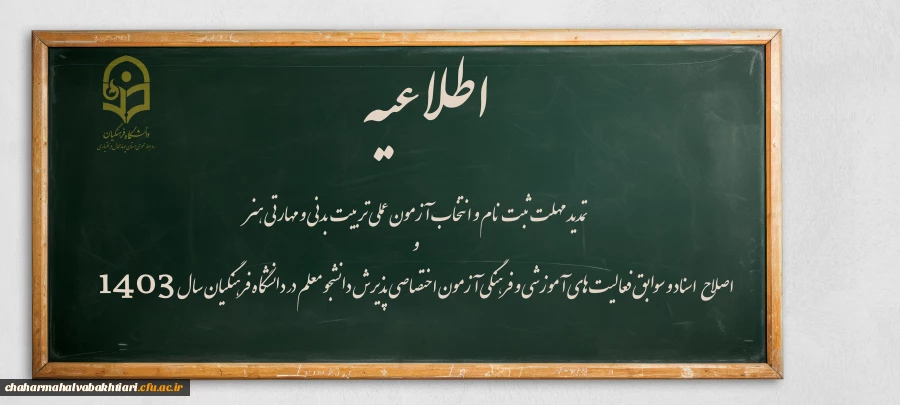 اطلاعیه
دانشگاه فرهنگیان
تمدید مهلت ثبت نام و انتخاب آزمون عملی تربیت بدنی و مهارتی هنر
و
اصلاح اسناد و سوابق فعالیت های آموزشی و فرهنگی آزمون اختصاصی پذیرش دانشجو معلم در دانشگاه فرهنگیان سال 1403
chaharmahalvabakhtiari.cfu.ac.ir